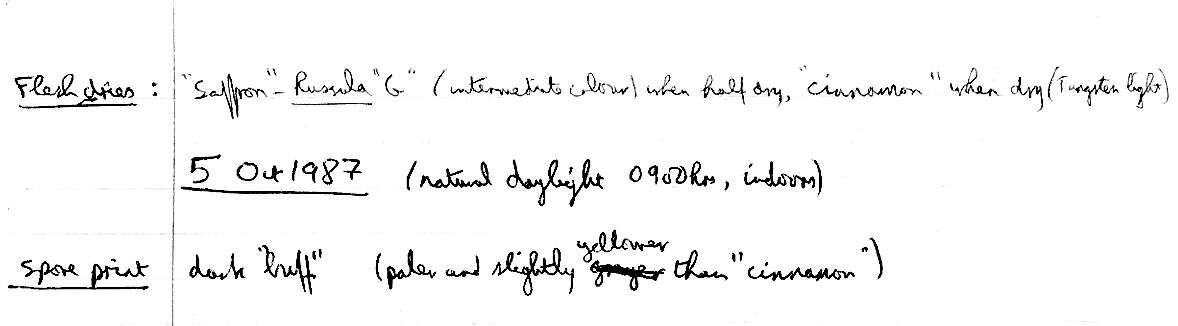 Flesh dries : "Saffron" - Russula "G" (intermediate colour) when half dry, "cinnamon" when dry (Tungsten light)
5 Oct 1987 (natural daylight 0900hrs, indoors)
yellower
Spore print dark "buff" (paler and slightly than "cinnamon")